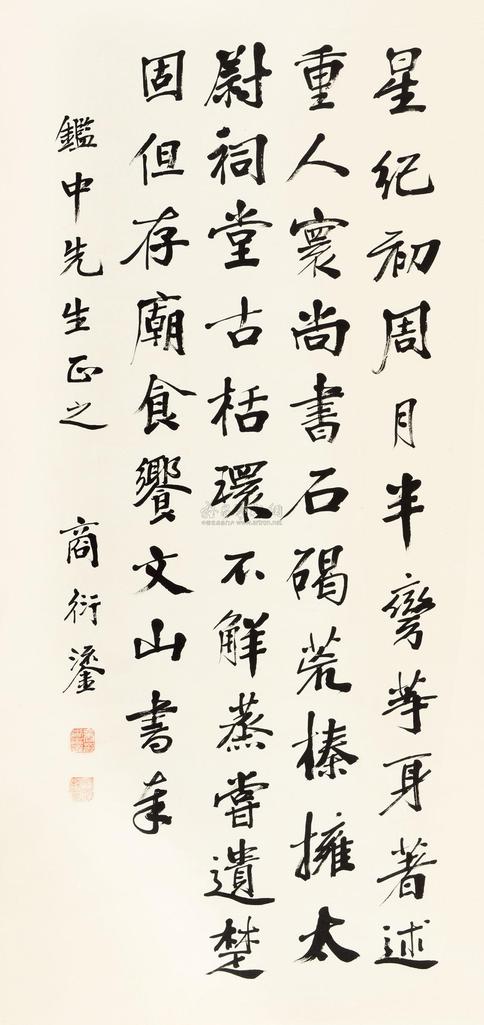 星纪初周月半弯等身著述
重人寰尚書石碣荒榛擁太
尉祠堂古栝環不解蒸嘗遺楚
固但存廟食饗文山書奉
鑑中先生正之 商衍鎏